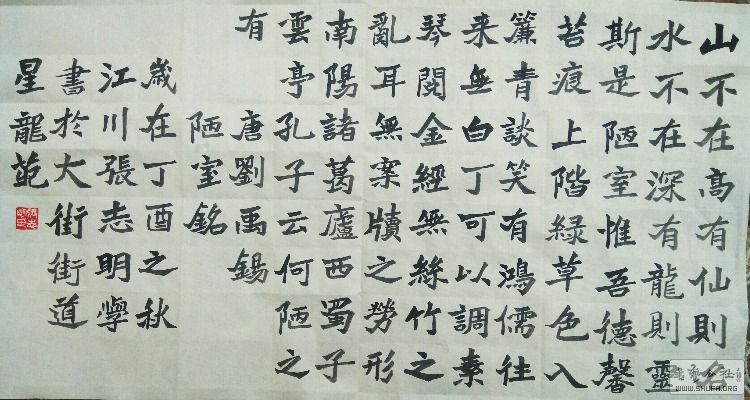 山不在高有仙則名
水不在深有龍則靈
斯是陋室惟吾德馨
苔痕上階緑草色入
簾青談笑有鴻儒往
来無白丁可以調素
琴閱金經無絲竹之
亂耳無案牘之勞形
南陽諸葛廬西蜀子
雲亭孔子云何陋之
有
唐劉禹錫
陋室銘
歲在丁酉之秋
江川張志明學
書於大街街道
星龍
WWW.SHUFA.ORG